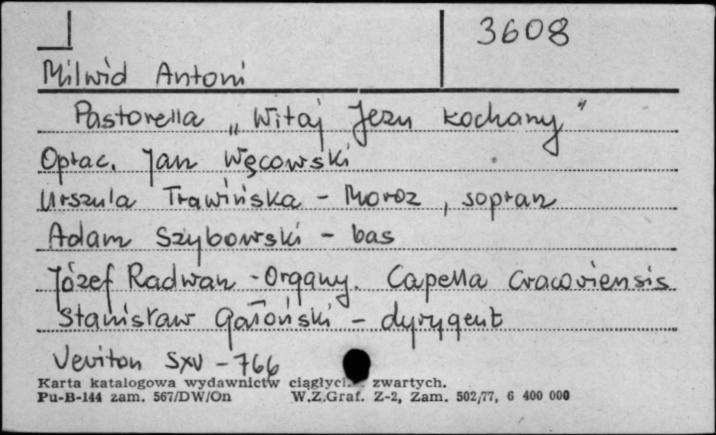 3608
Milwid Antoni
Pastorella „Witaj Jezu kochany"
Oprac. Jan Węcowski
Urszula Trawińska - Moroz, sopran
Adam Szybowski - bas
Józef Radwan - Organy. Capella Cracoviensis
Stanisław Gałoński - dyrygent
Veriton SXV - 766
Karta katalogowa wydawnictw ciągłyc zwartych.
Pu-B-144 zam. 567/DW/On W.Z.Graf. Z-2, Zam. 502/77, 6 400 000